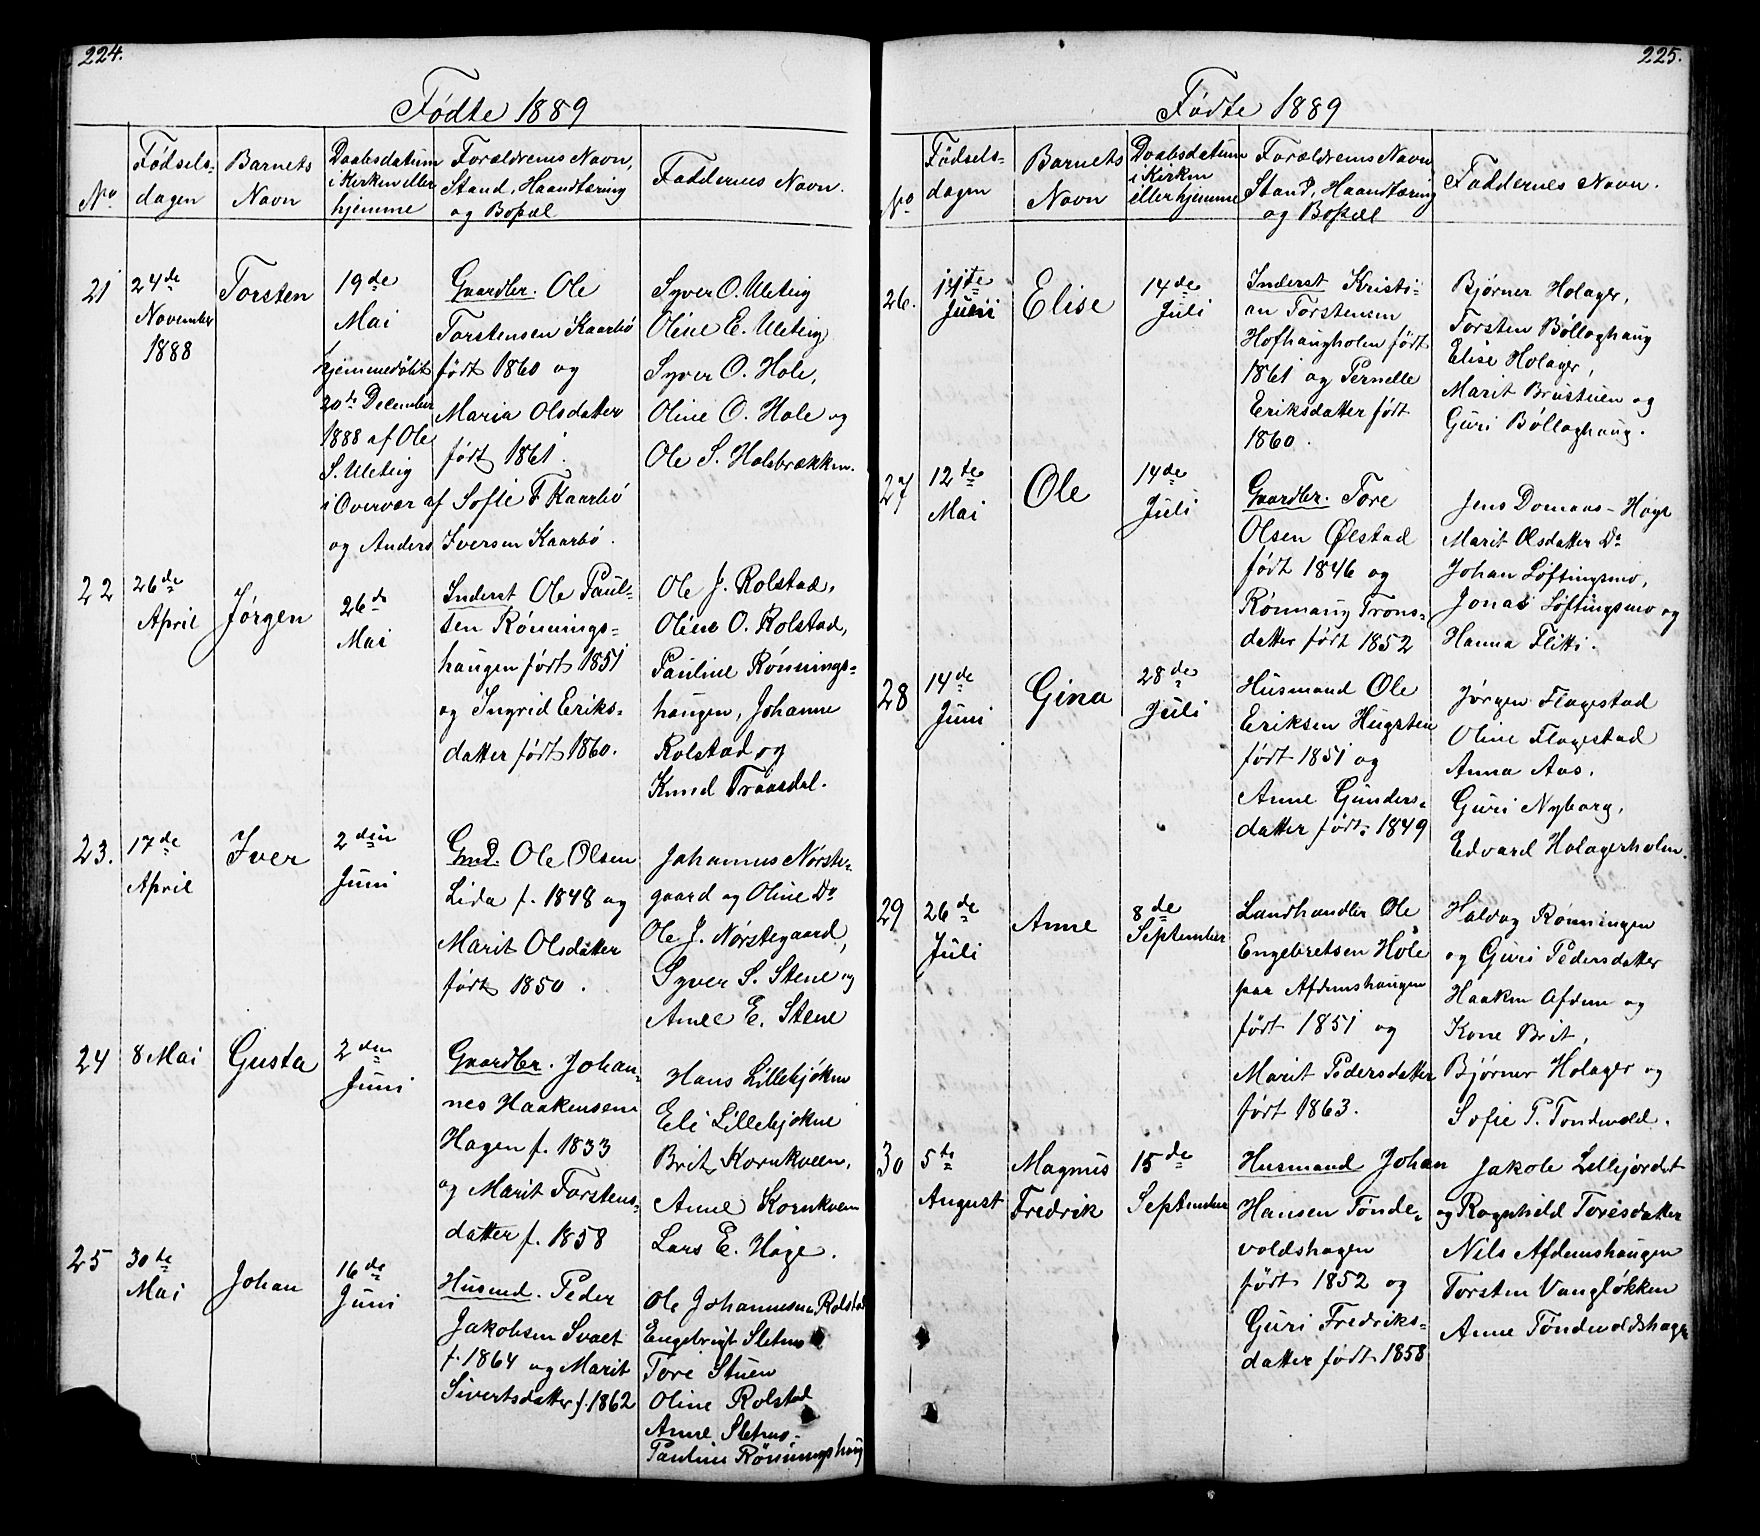 224.
Fødte 1889
No
Fødsels-
dagen
Barnets
Navn
Daabsdatum
i Kirken eller
hjemme
Forældrenes Navn,
Stand, Haandtæring
og Bopæl
Faddernes Navn.
21
24de
November
1888
Torsten
19de
Mai
hjemmedøbt
20de December
1888 af Ole
S. Uleteig
i Overvær af Sofie T Kaarbø
og Anders Iversen Kaarbø.
Gaardbr. Ole
Torstensen Kaarbø
født 1860 og
Maria Olsdatter
født 1861.
Syver O. Uleteig
Oline E. Uleteig
Syver O. Hole,
Oline O. Hole og
Ole S. Holsbrækken.
22
26de
April
Jørgen
26de
Mai
Inderst Ole Paul-
sen Rønnings-
haugen født 1851
og Ingrid Eriks-
datter født 1860.
Ole J. Rolstad,
Oline O. Rolstad,
Pauline Rønnings-
haugen, Johanne
Rolstad og
Knud Traasdal.
23.
17de
April
Iver
2den
Juni
Gmd. Ole Olsen
Lida f. 1848 og
Marit Olsdatter
født 1850.
Johannes Nørste-
gaard og Oline Do
Ole J. Nørstegaard,
Syver S. Stene og
Anne E. Stene
24
8 Mai
Gusta
2den
Juni
Gaardbr. Johan-
nes Haakensen
Hagen f. 1833
og Marit Torstens-
datter f. 1858
Hans Lillebjøkne
Eli Lillebjøkne
Brit Kornkveen,
Anne Kornkveen
Lars E. Hage.
25
30te
Mai
Johan
16de
Juni
Husmd. Peder
Jakobsen Svaet
f. 1864 og Marit
Sivertsdatter f. 1862
Ole Johannesen Rolstad
Engebrigt Sletmo
Tore Stuen
Oline Rolstad
Anne Sletmo-
Pauline Rønningshaug
225.
Fødte 1889
No
Fødsels-
dagen
Barnets
Navn
Daabsdatum
i Kirken
eller hjemme
Forældrenes Navn
Stand, Haandtæring
og Bopæl
Faddernes Navn.
26.
Juni
Elise
14de
Juli
Inderst Kristi-
an Torstensen
Hofhaugholen født
1861 og Pernelle
Eriksdatter født
1860.
Bjørner Holager,
Torsten Bøllaghaug
Elise Holager,
Marit Brustuen og
Guri Bøllaghaug.
27
12te
Mai
Ole
14de
Juli
Gaardbr. Tore
Olsen Ølstad
født 1846 og
Rønnaug Trons-
datter født 1852
Jens Domaas-Høge
Marit Olsdatter Do
Johan Løftingsmo,
Jonas Løftingsmo og
Hanna Flitti.
28
14de
Juni
Gina
28de
Juli
Husmand Ole
Eriksen Hugsten
født 1851 og
Anne Gunders-
datter født 1849
Jørgen Flagestad
Oline Flagestad
Anna Aas,
Guri Nyborg,
Edvard Holagerholen.
29
26de
Juli
Anne
8de
September
Landhandler Ole
Engebretsen Hole
paa Afdemshaugen
født 1851 og
Marit Pedersdatter
født 1863.
Haldog Rønningen
og Guri Pedersdatter
Haaken Afdem og
Kone Brit,
Bjørner Holager og
Sofie P. Tondevold.
30
5te
August
Magnus
Fredrik
15de
September
Husmand Johan
Hansen Tønde-
voldshagen
født 1852 og
Guri Fredriks-
datter født 1858
Jakob Lillejordet
og Ragnhild Toresdatter
Nils Afdemshaugen
Torsten Vangløkken
Anne Tøndevoldshage